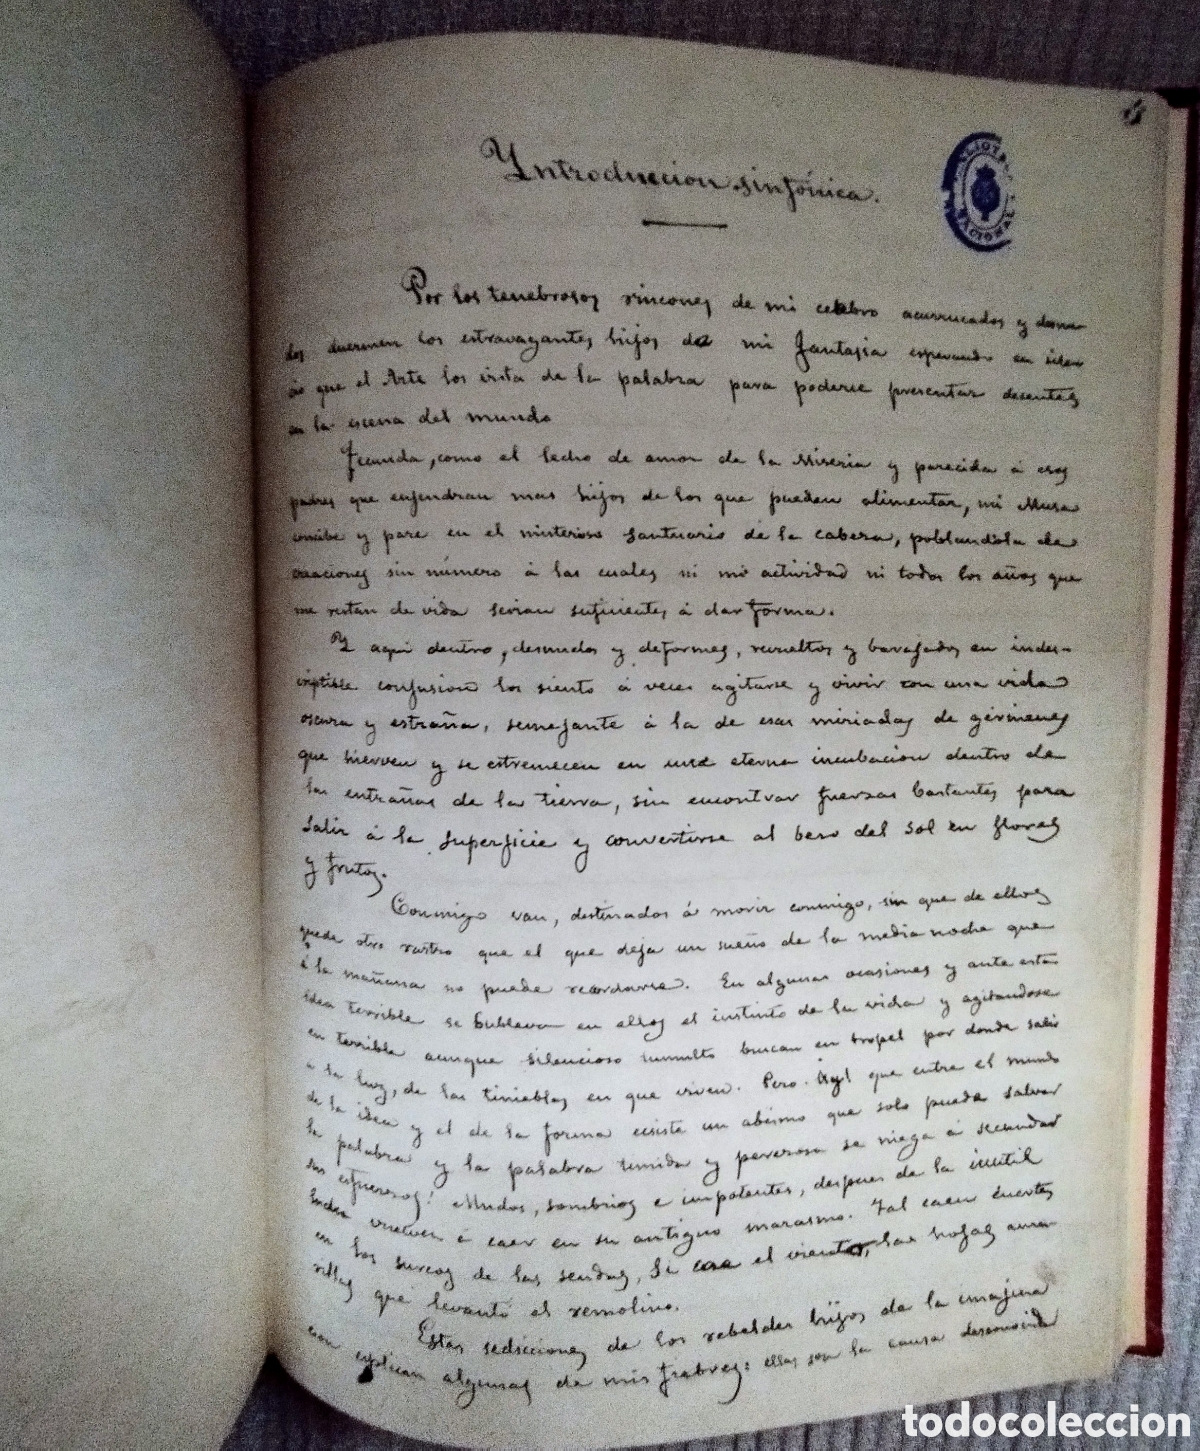 6
Yntroduccion sinfónica.
BIBLIOTECA NACIONAL
Por los tenebrosos rincones de mi celebro acurrucados y desnu-
dos duermen los estravagantes hijos de mi fantasia esperando en silen
cio que el Arte los vista de la palabra para poderse presentar decentes
en la escena del mundo
Fecunda, como el lecho de amor de la Miseria y parecida á esos
padres que enjendran mas hijos de los que pueden alimentar, mi Musa
concibe y pare en el misterioso santuario de la cabeza, poblandola de
creaciones sin número á las cuales ni mi actividad ni todos los años que
me restan de vida serian suficientes á dar forma.
Y aqui dentro, desnudos y deformes, revueltos y barajados en indes-
criptible confusion los siento á veces agitarse y vivir con una vida
oscura y estraña, semejante á la de esas miriadas de gérmenes
que hierven y se estremecen en una eterna incubacion dentro de
las entrañas de la tierra, sin encontrar fuerzas bastantes para
salir á la superficie y convertirse al beso del sol en flores
y frutos.
Conmigo van, destinados á morir conmigo, sin que de ellos
quede otro rastro que el que deja un sueño de la media noche que
á la mañana no puede recordarse. En algunas ocasiones y ante esta
idea terrible se subleva en ellos el instinto de la vida y agitandose
en terrible aunque silencioso tumulto buscan en tropel por donde salir
a la luz, de las tinieblas en que viven. Pero ¡Ay! que entre el mundo
de la idea y el de la forma ecsiste un abismo que solo puede salvar
la palabra y la palabra timida y perezosa se niega á secundar
sus esfuerzos! Mudos, sombrios e impotentes, despues de la inutil
lucha vuelven á caer en su antiguo marasmo. Tal caen inertes
en los surcos de las sendas, si cae el viento, las hojas ama-
rillas que levantó el remolino.
Estas sediciones de los rebeldes hijos de la imajina
cion esplican algunas de mis fiebres: ellas son la causa desconocida
todocoleccion